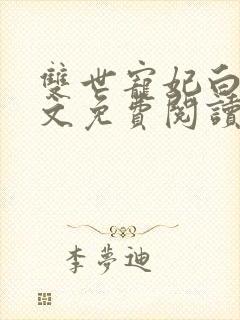 雙世寵妃白
文免費閱讀
李夢迪